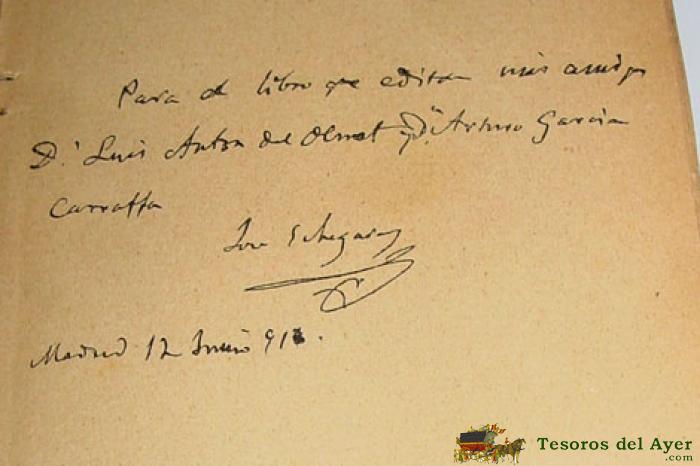 Para el libro que editan mis amigos
D.n Luis Anton del Olmet y D.n Arturo Garcia
Carraffa
José Echegaray
Madrid 12 Junio 912.
Tesoros del Ayer
.com